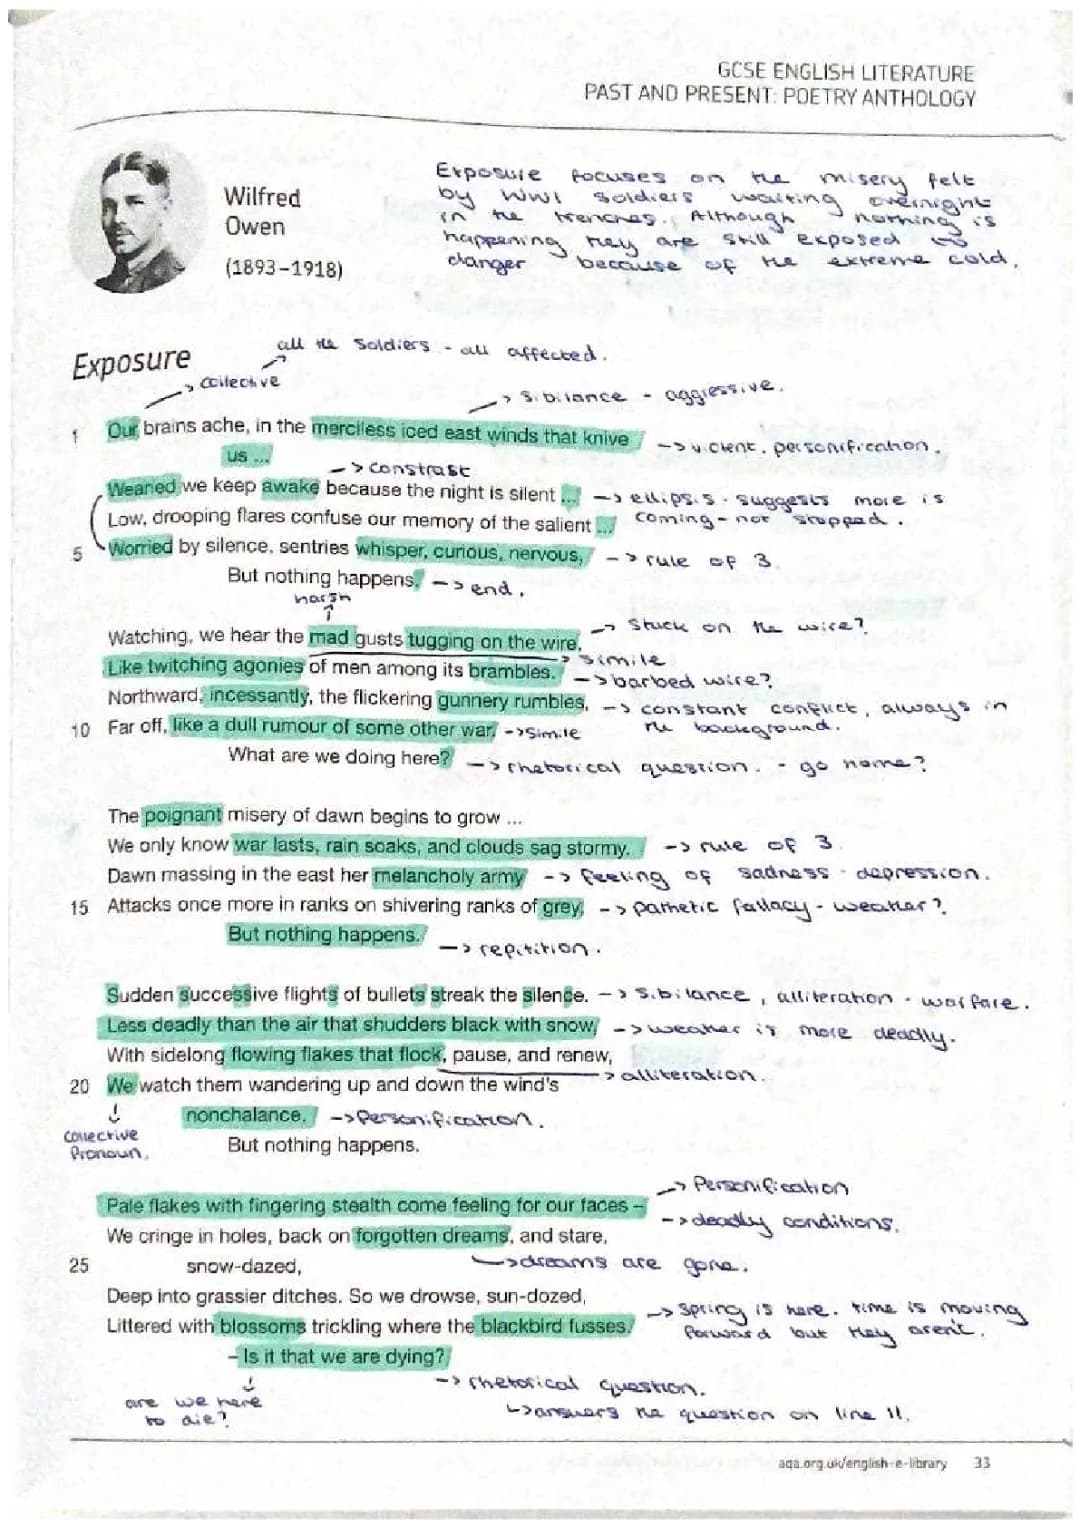 GCSE ENGLISH LITERATURE
PAST AND PRESENT: POETRY ANTHOLOGY
Wilfred
Owen
(1893–1918)
Exposure focuses on the misery felt
by WW1 soldiers waiting overnight
in the trenches. Although nothing is
happening they are still exposed to
danger because of the extreme cold.
Exposure
all the soldiers - all affected.
-> collective
-> sibilance - aggressive.
1 Our brains ache, in the merciless iced east winds that knive -> violent, personification.
us ...
-> constrast
Wearied we keep awake because the night is silent ... -> ellipsis. suggests more is
Low, drooping flares confuse our memory of the salient ... coming - not stopped.
5 Worried by silence, sentries whisper, curious, nervous, -> rule of 3.
But nothing happens. -> end.
harsh
Watching, we hear the mad gusts tugging on the wire, -> stuck on the wire?
-> simile
Like twitching agonies of men among its brambles. -> barbed wire?
Northward, incessantly, the flickering gunnery rumbles, -> constant conflict, always in
10 Far off, like a dull rumour of some other war. -> simile the background.
What are we doing here? -> rhetorical question. - go home?
The poignant misery of dawn begins to grow ...
We only know war lasts, rain soaks, and clouds sag stormy. -> rule of 3
Dawn massing in the east her melancholy army -> feeling of sadness - depression.
15 Attacks once more in ranks on shivering ranks of grey, -> pathetic fallacy - weather?
But nothing happens. -> repitition.
Sudden successive flights of bullets streak the silence. -> sibilance, alliteration - warfare.
Less deadly than the air that shudders black with snow, -> weather is more deadly.
With sidelong flowing flakes that flock, pause, and renew,
-> alliteration.
20 We watch them wandering up and down the wind's
nonchalance. -> Personification.
collective
Pronoun.
But nothing happens.
-> Personification
Pale flakes with fingering stealth come feeling for our faces –
-> deadly conditions.
We cringe in holes, back on forgotten dreams, and stare,
25 snow-dazed, -> dreams are gone.
Deep into grassier ditches. So we drowse, sun-dozed,
-> Spring is here. time is moving
Littered with blossoms trickling where the blackbird fusses. forward but they aren't.
– Is it that we are dying?
-> rhetorical question.
are we here
to die?
-> answers the question on line 11.
aqa.org.uk/english-e-library 33